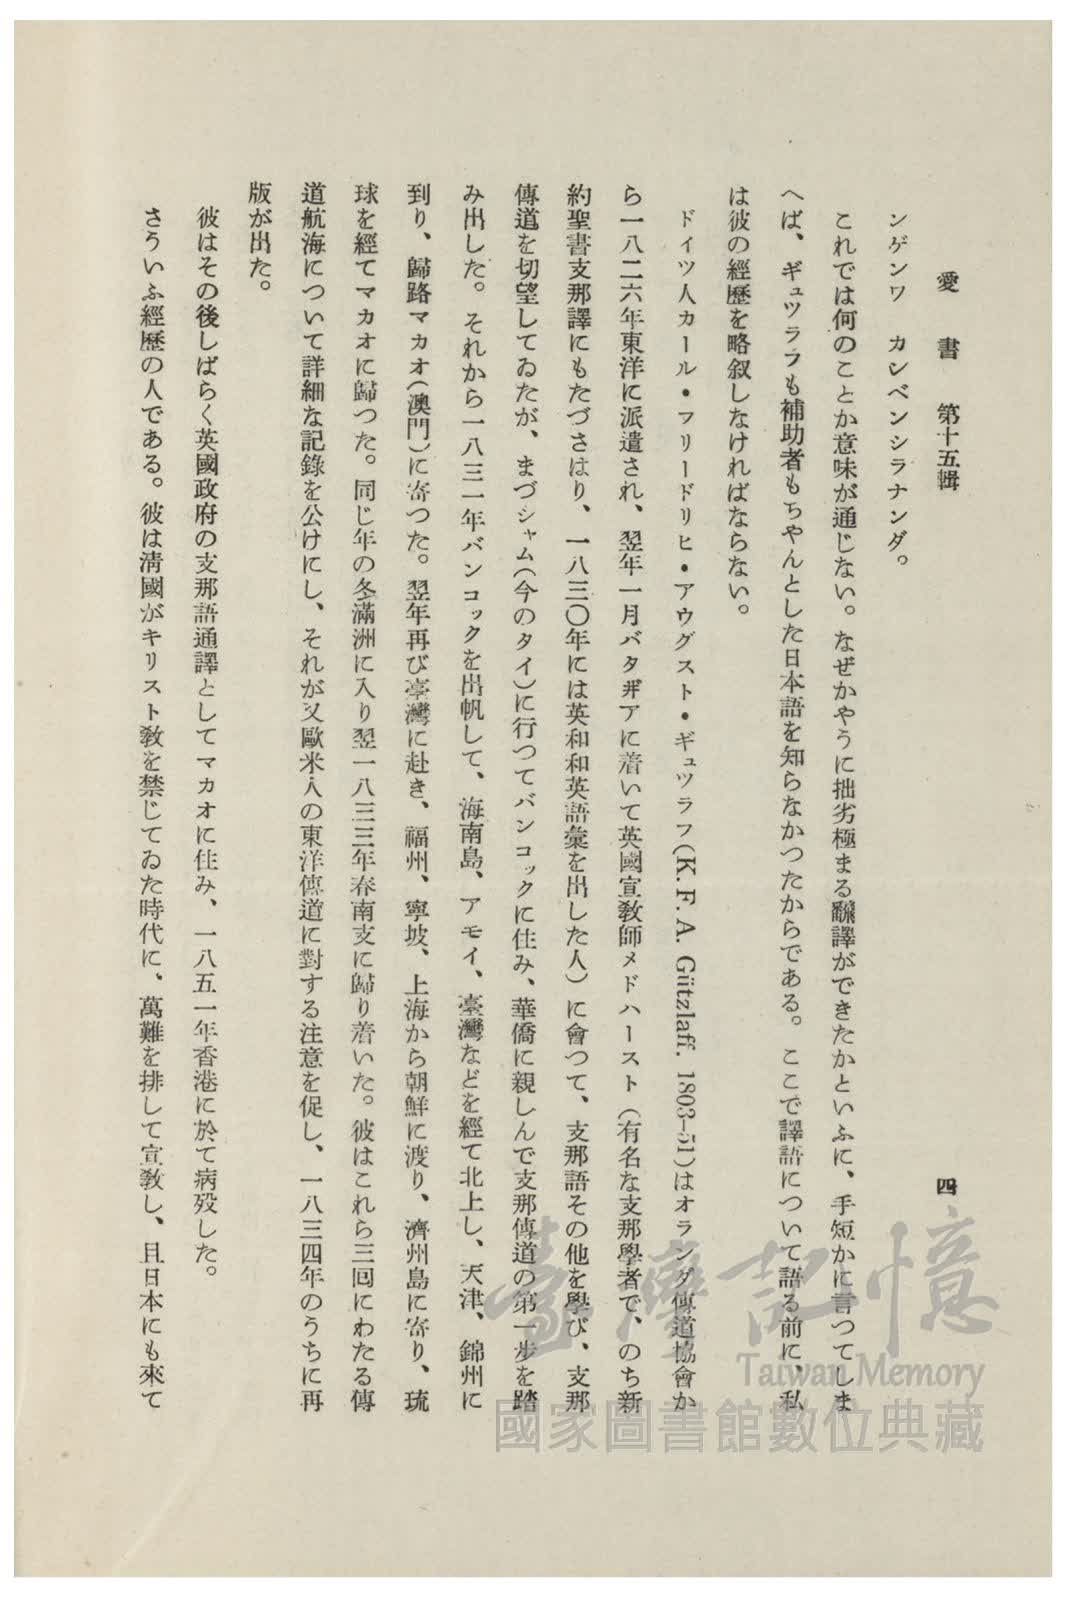 愛書　第十五輯　四
ンゲンワ　カンベンシラナンダ。
これでは何のことか意味が通じない。なぜかやうに拙劣極まる飜譯ができたかといふに、手短かに言つてしま
へば、ギュツラフも補助者もちやんとした日本語を知らなかつたからである。ここで譯語について語る前に、私
は彼の經歷を略叙しなければならない。
ドイツ人カール・フリードリヒ・アウグスト・ギュツラフ(K. F. A. Gützlaff. 1803-51)はオランダ傳道協會か
ら一八二六年東洋に派遣され、翌年一月バタヸアに着いて英國宣敎師メドハースト（有名な支那學者で、のち新
約聖書支那譯にもたづさはり、一八三〇年には英和和英語彙を出した人）に會つて、支那語その他を學び、支那
傳道を切望してゐたが、まづシャム(今のタイ)に行つてバンコックに住み、華僑に親しんで支那傳道の第一步を踏
み出した。それから一八三一年バンコックを出帆して、海南島、アモイ、臺灣などを經て北上し、天津、錦州に
到り、歸路マカオ(澳門)に寄つた。翌年再び臺灣に赴き、福州、寧坡、上海から朝鮮に渡り、濟州島に寄り、琉
球を經てマカオに歸つた。同じ年の冬滿洲に入り翌一八三三年春南支に歸り着いた。彼はこれら三囘にわたる傳
道航海について詳細な記錄を公けにし、それが又歐米人の東洋傳道に對する注意を促し、一八三四年のうちに再
版が出た。
彼はその後しばらく英國政府の支那語通譯としてマカオに住み、一八五一年香港に於て病歿した。
さういふ經歷の人である。彼は淸國がキリスト敎を禁じてゐた時代に、萬難を排して宣敎し、且日本にも來て
臺灣記憶
Taiwan Memory
國家圖書館數位典藏